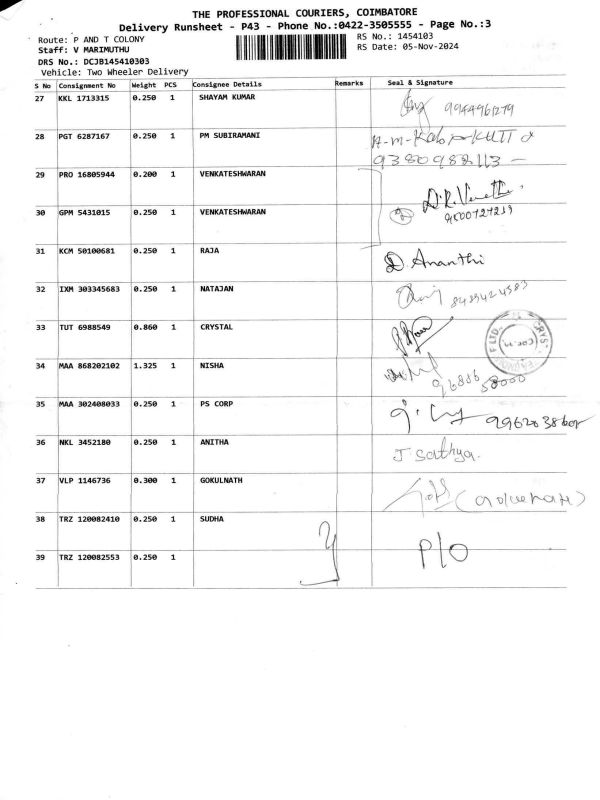 THE PROFESSIONAL COURIERS, COIMBATORE
Delivery Runsheet - P43 - Phone No.:0422-3505555 - Page No.:3
Route: P AND T COLONY
RS No.: 1454103
Staff: V MARIMUTHU
RS Date: 05-Nov-2024
DRS No.: DCJB145410303
Vehicle: Two Wheeler Delivery
S No Consignment No Weight PCS Consignee Details Remarks Seal & Signature
27 KKL 1713315 0.250 1 SHAYAM KUMAR 9944961279
28 PGT 6287167 0.250 1 PM SUBIRAMANI
9380982113
29 PRO 16805944 0.200 1 VENKATESHWARAN
30 GPM 5431015 0.250 1 VENKATESHWARAN
31 KCM 50100681 0.250 1 RAJA D. Ananthi
32 IXM 303345683 0.250 1 NATAJAN
33 TUT 6988549 0.860 1 CRYSTAL
34 MAA 868202102 1.325 1 NISHA 96886 58000
35 MAA 302408033 0.250 1 PS CORP
36 NKL 3452180 0.250 1 ANITHA J Sathya.
37 VLP 1146736 0.300 1 GOKULNATH
38 TRZ 120082410 0.250 1 SUDHA
39 TRZ 120082553 0.250 1 P/O